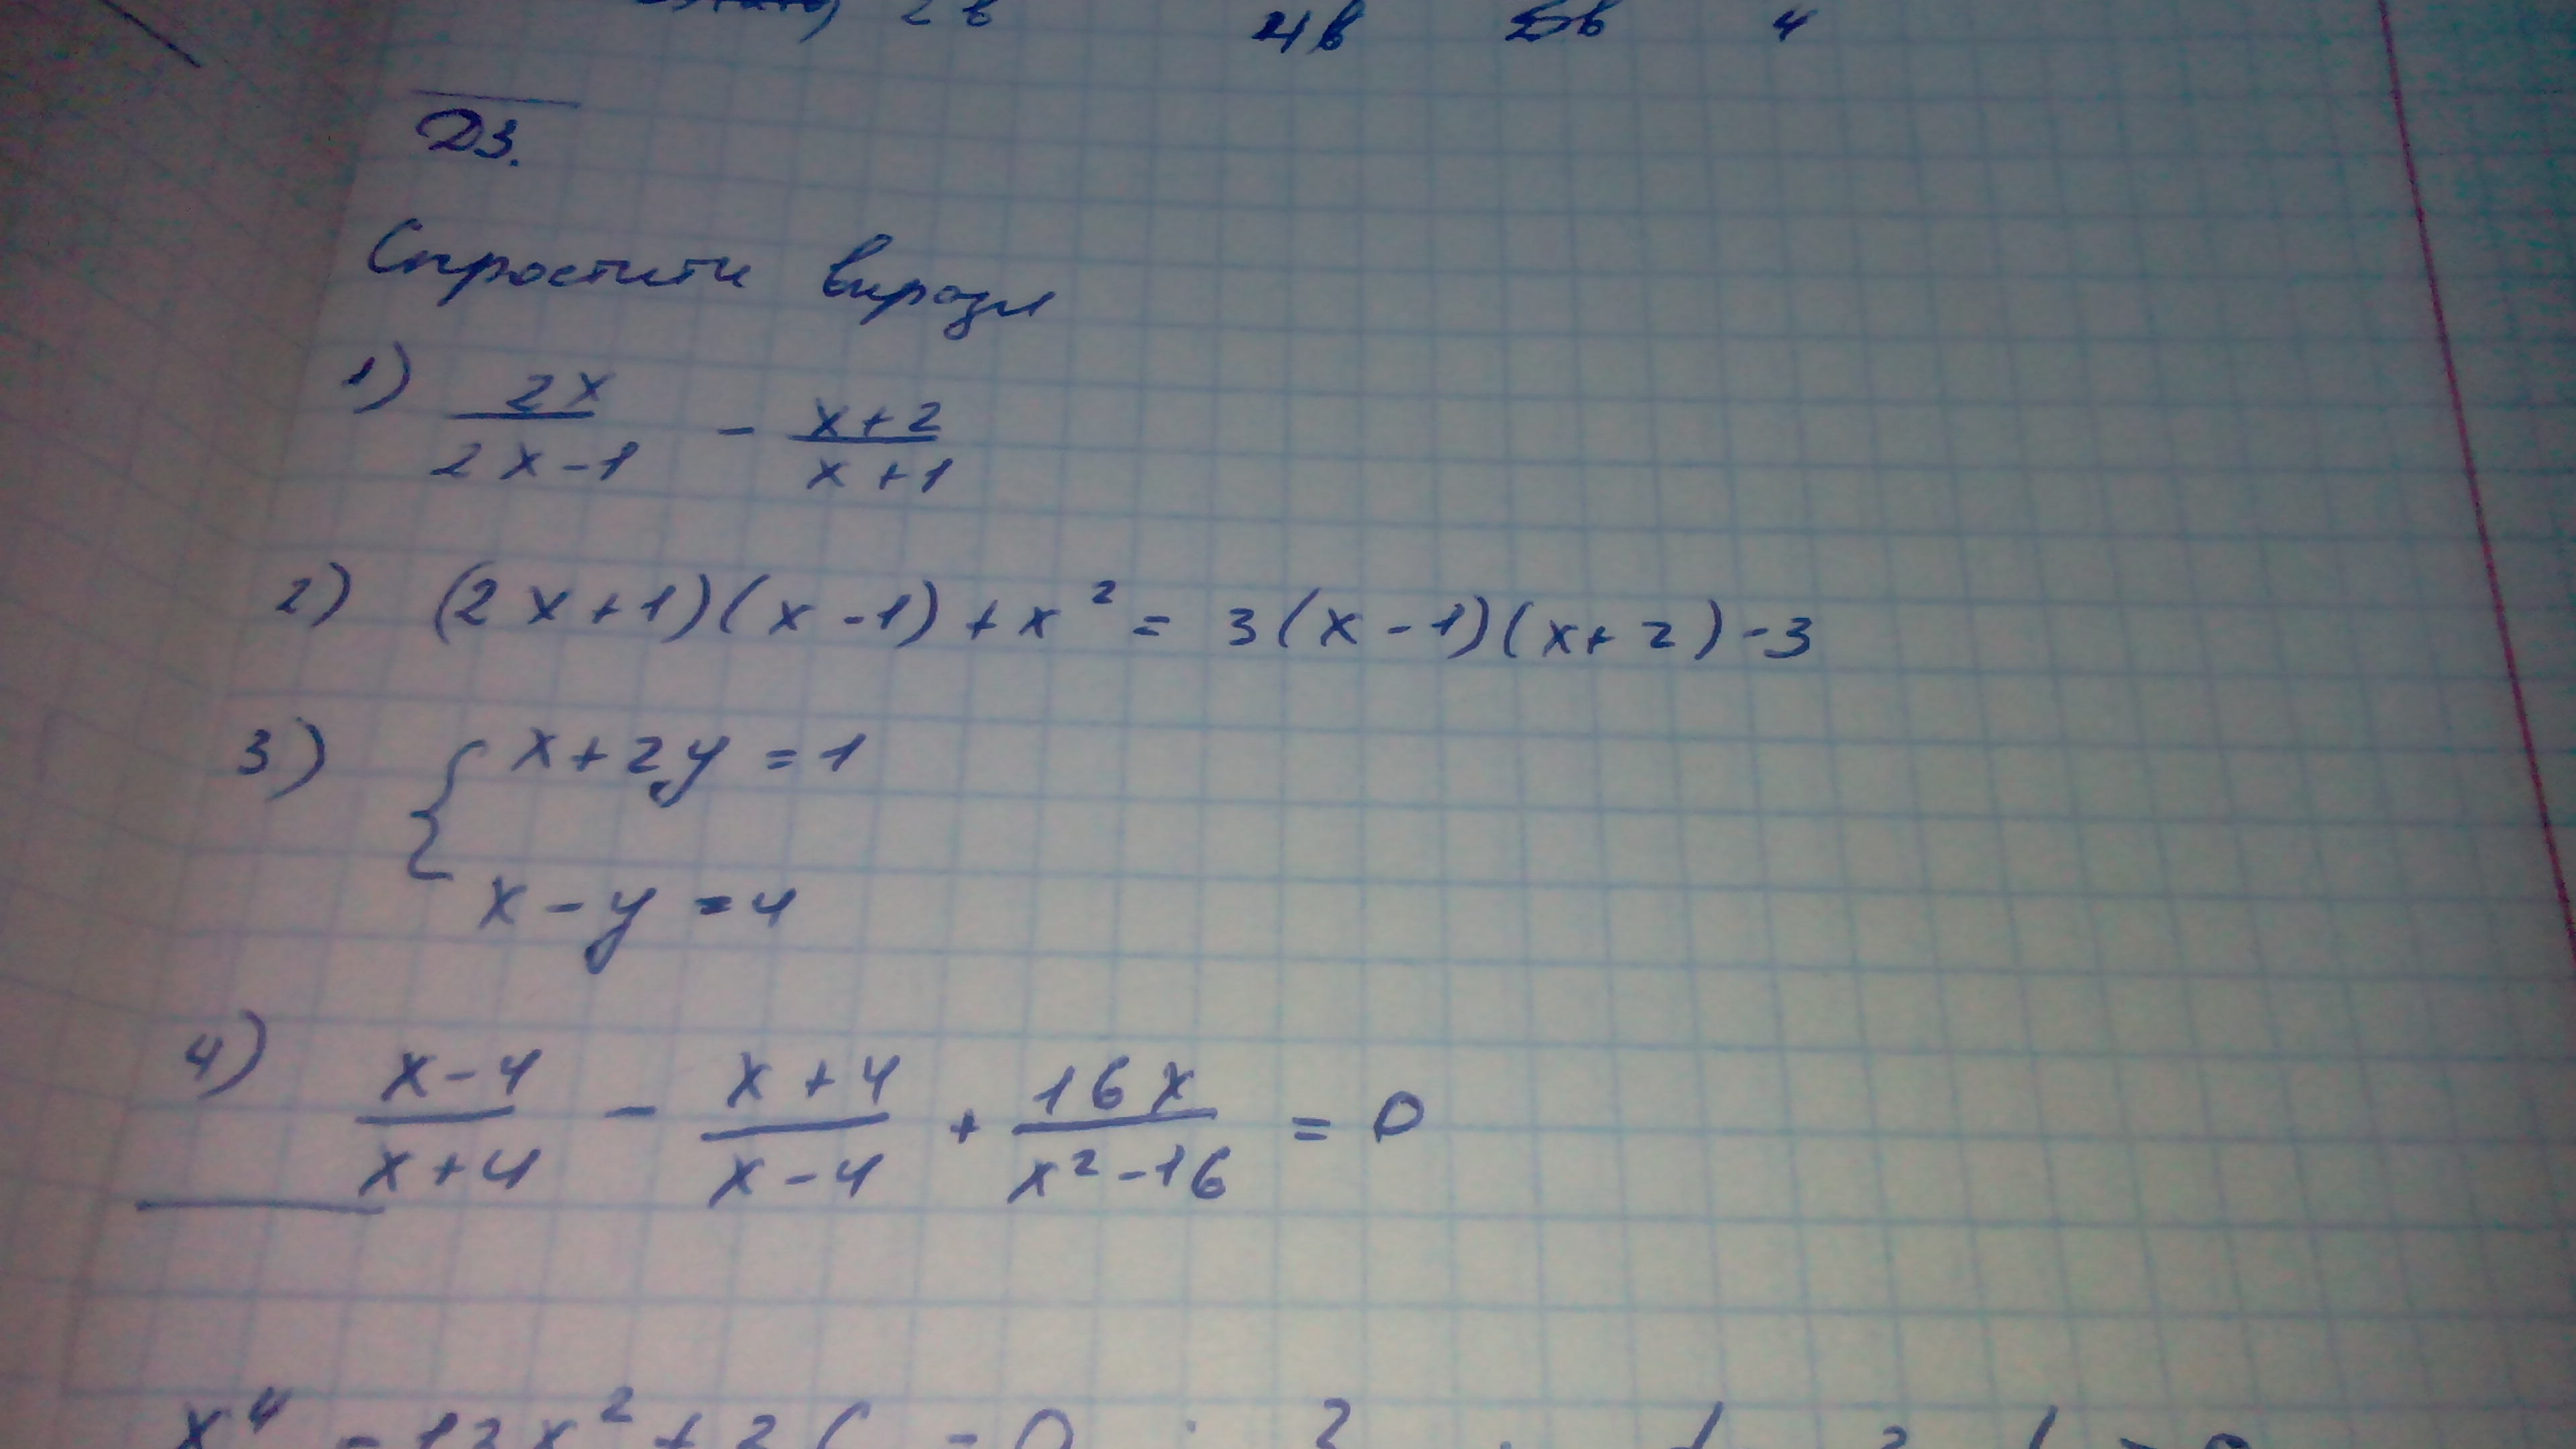 2в 4в 5в 4
ДЗ.
Спростити вирази
1) \frac{2x}{2x-1} - \frac{x+2}{x+1}
2) (2x+1)(x-1)+x² = 3(x-1)(x+2)-3
3) { x+2y=1
x-y=4
4) \frac{x-4}{x+4} - \frac{x+4}{x-4} + \frac{16x}{x²-16} = 0